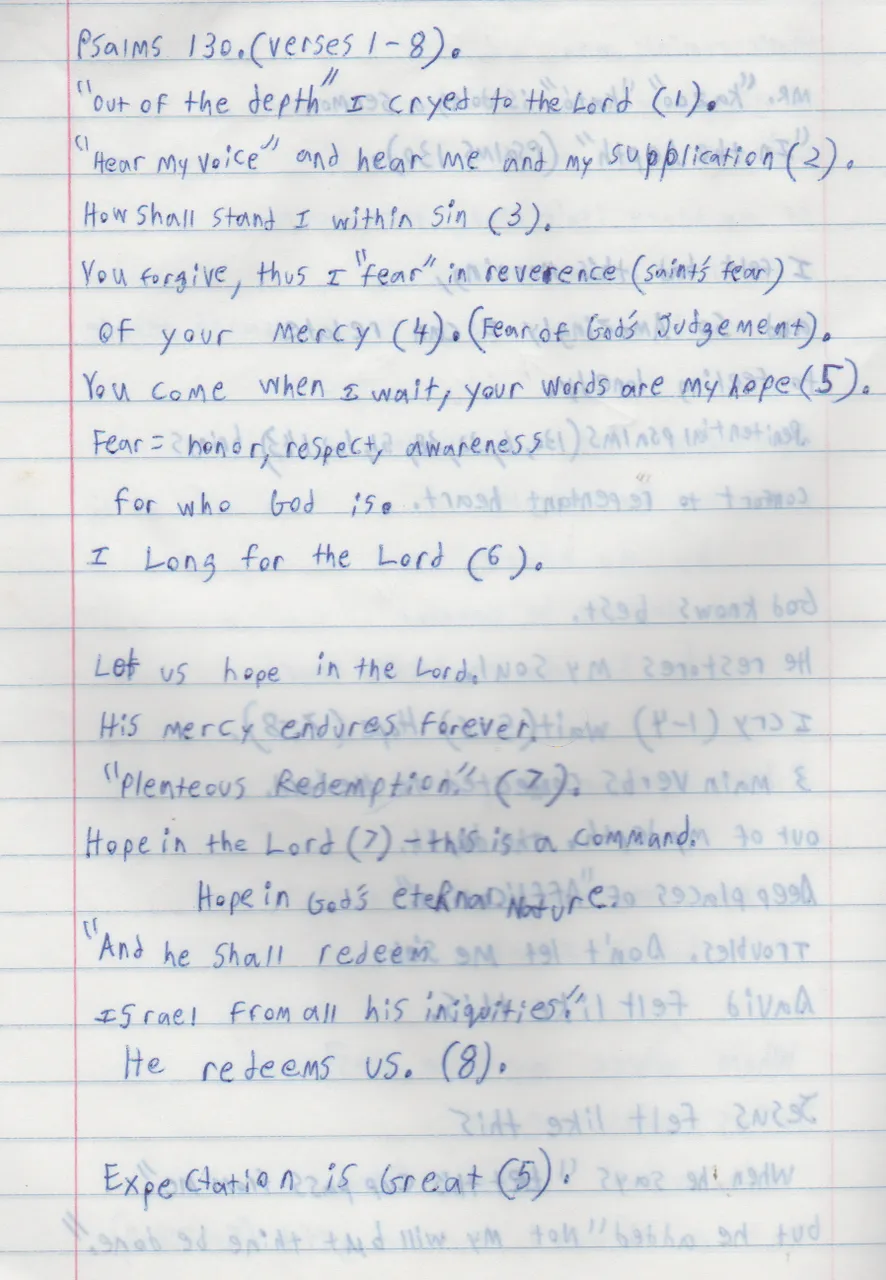 Psalms 130. (verses 1-8).
"out of the depth" I cryed to the Lord (1).
"Hear my voice" and hear me and my supplication (2).
How shall stand I within sin (3).
You forgive, thus I "fear" in reverence (saint's fear)
Of your mercy (4). (Fear of God's Judgement).
You come when I wait, your words are my hope (5).
Fear = honor, respect, awareness
for who God is.
I Long for the Lord (6).
Let us hope in the Lord.
His mercy endures forever.
"Plenteous Redemption." (7).
Hope in the Lord (7) - this is a command.
Hope in God's eternal Nature.
"And he shall redeem
Israel from all his iniquities."
He redeems us. (8).
Expectation is Great (5).